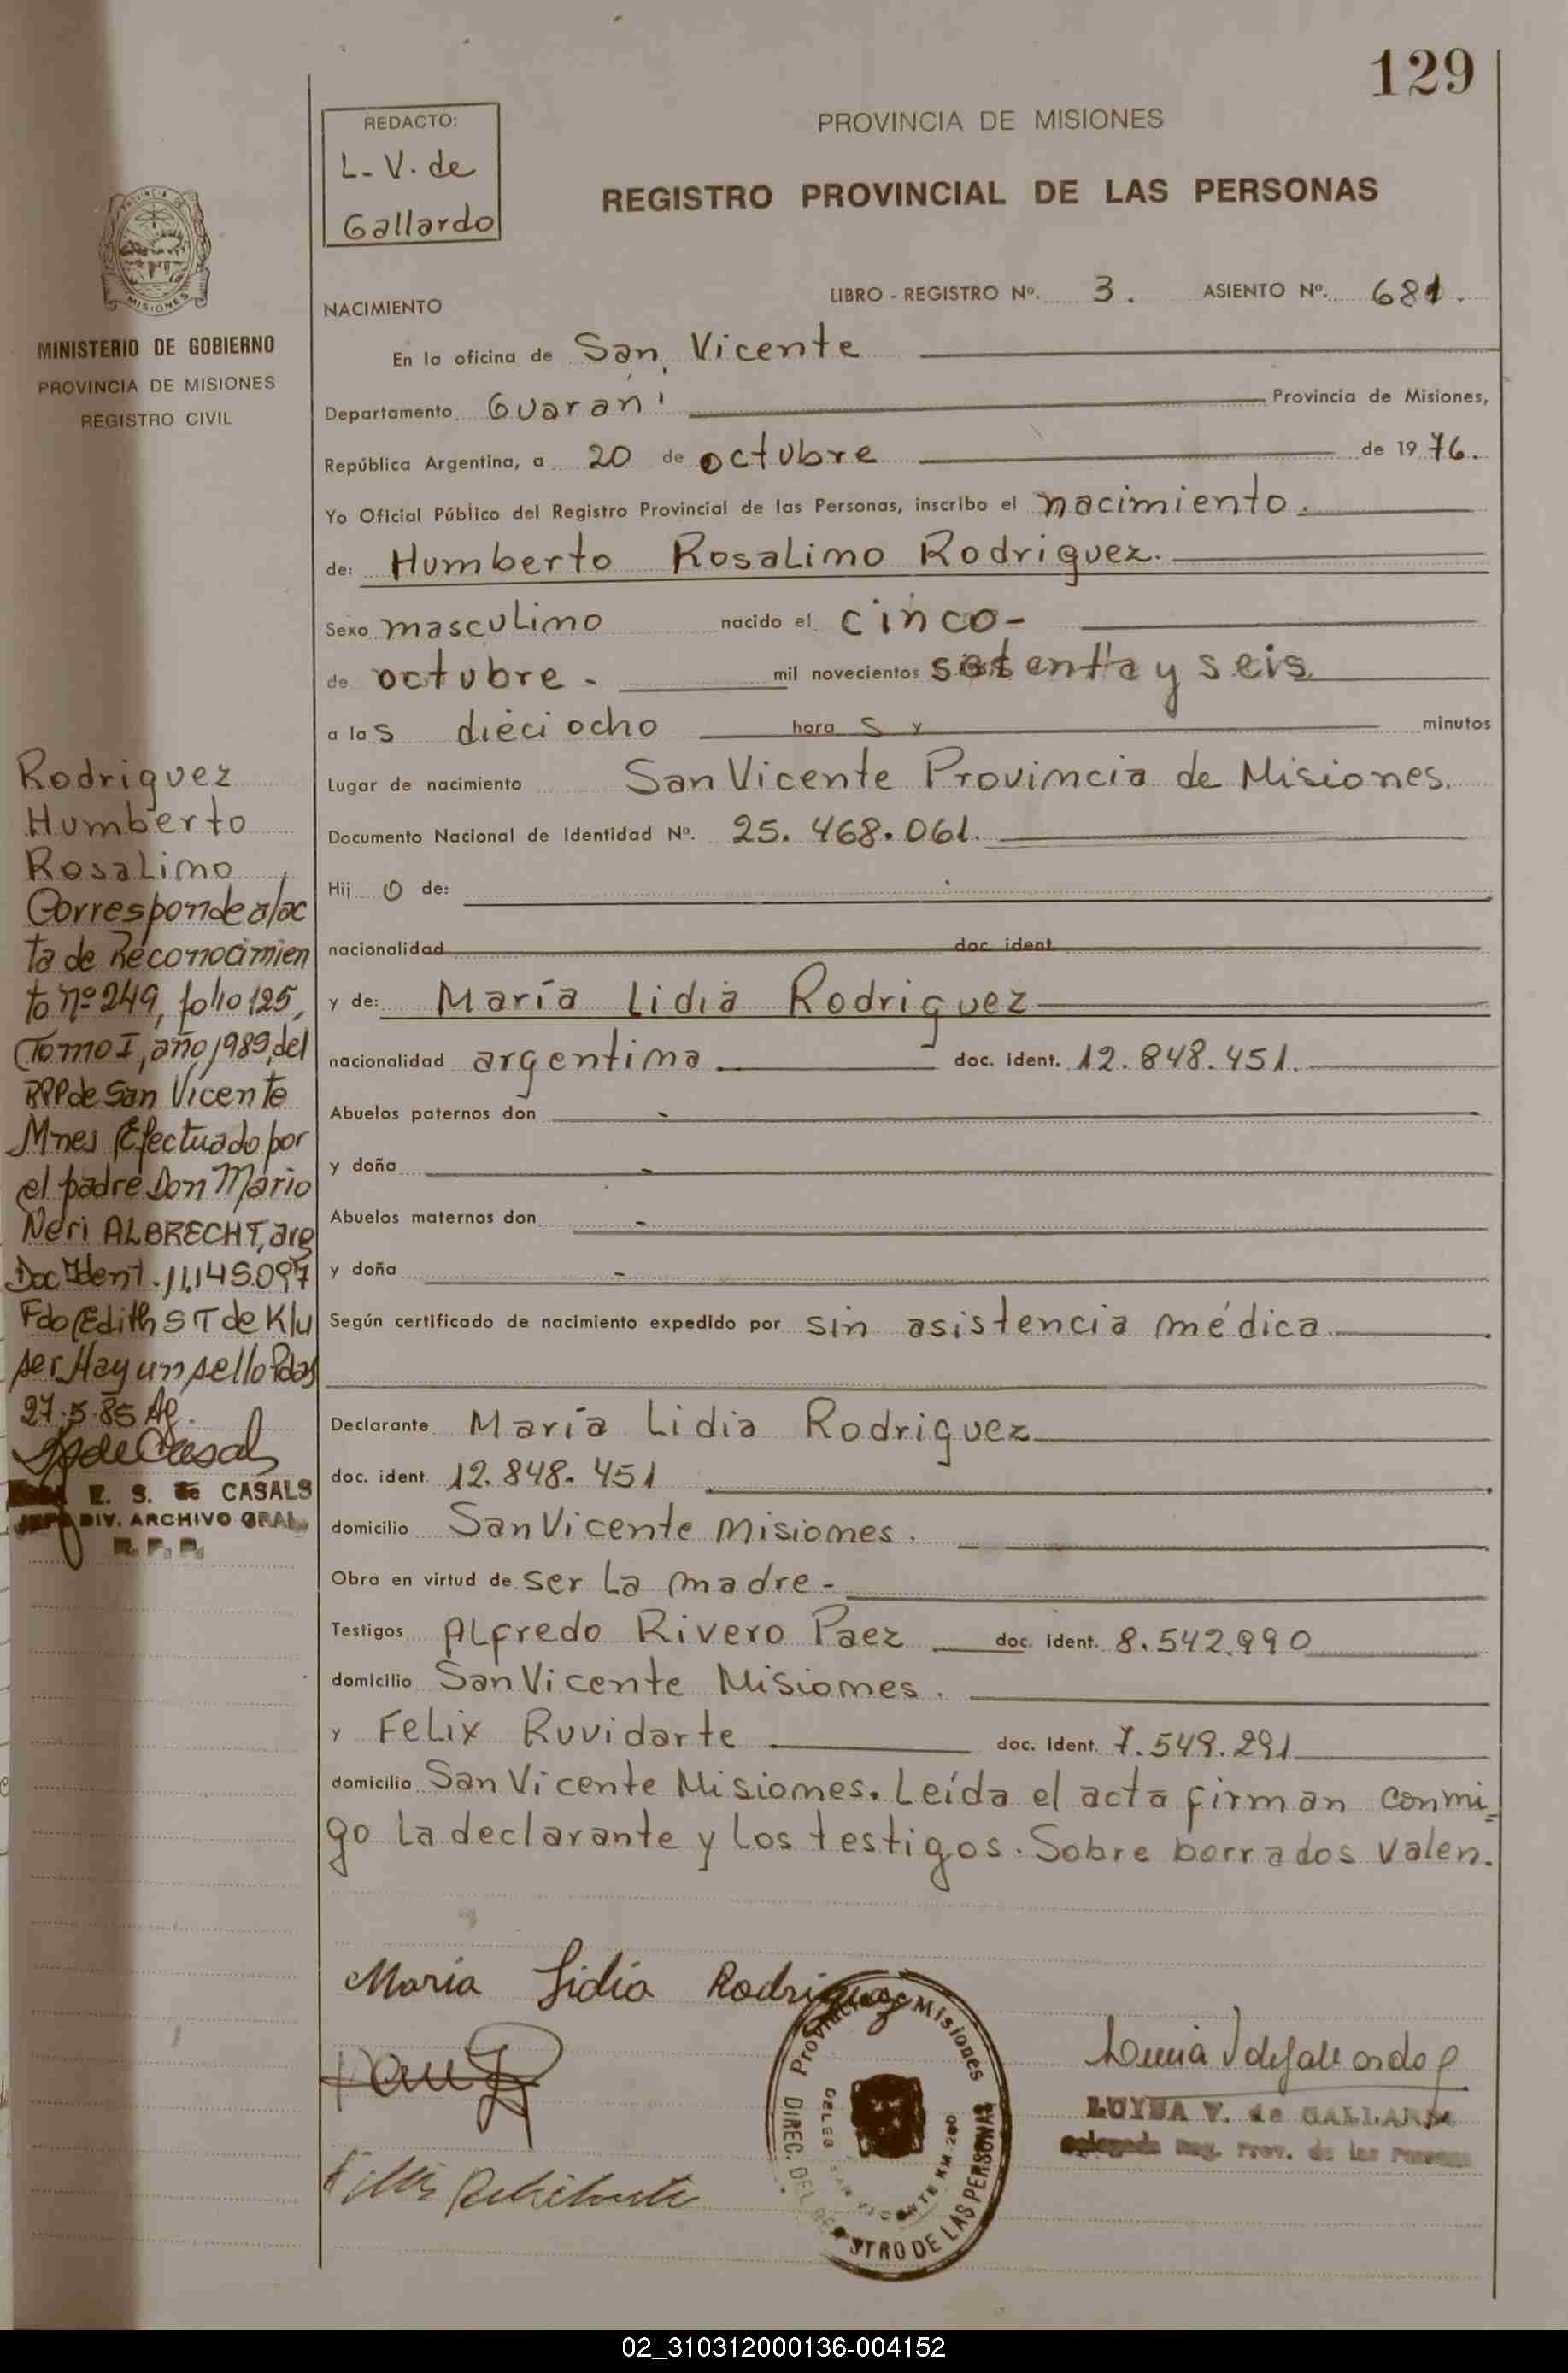 129
REDACTO:
L. V. de
Gallardo
PROVINCIA DE MISIONES
REGISTRO PROVINCIAL DE LAS PERSONAS
MISIONES
MINISTERIO DE GOBIERNO
PROVINCIA DE MISIONES
REGISTRO CIVIL
NACIMIENTO
LIBRO - REGISTRO Nº. 3. ASIENTO Nº. 681.
En la oficina de San Vicente
Departamento Guaraní Provincia de Misiones,
República Argentina, a 20 de octubre de 1976.
Yo Oficial Público del Registro Provincial de las Personas, inscribo el nacimiento.
de: Humberto Rosalino Rodriguez.
Sexo masculino nacido el cinco-
de octubre - mil novecientos setenta y seis
a las dieciocho horas y minutos
Lugar de nacimiento San Vicente Provincia de Misiones.
Documento Nacional de Identidad Nº. 25.468.061.
Hijo de:
nacionalidad doc. ident.
y de: María Lidia Rodriguez
nacionalidad argentina doc. ident. 12.848.451.
Abuelos paternos don -
y doña -
Abuelos maternos don -
y doña -
Según certificado de nacimiento expedido por sin asistencia médica.
Declarante María Lidia Rodriguez
doc. ident. 12.848.451
domicilio San Vicente Misiones.
Obra en virtud de ser la madre -
Testigos Alfredo Rivero Paez doc. ident. 8.542.990
domicilio San Vicente Misiones.
y Felix Ruvidarte doc. ident. 7.549.291
domicilio San Vicente Misiones. Leída el acta firman conmi=
go la declarante y los testigos. Sobre borrados valen.
Rodriguez
Humberto
Rosalino
Corresponde a/ac
ta de Reconocimien
to nº 249, folio 125,
Tomo I, año 1989, del
RPP de San Vicente
Mnes Efectuado por
el padre Don Mario
Neri ALBRECHT, arg
Doc Ident. 11.145.097
Fdo Edith S T de Klu
ser Hay un sello Pdas
27.5.85
E. S. de CASALS
JEFE DIV. ARCHIVO GRAL.
R. P. P.
María Lidia Rodriguez
Provincia de Misiones
DIREC. DEL REGISTRO DE LAS PERSONAS
DELEG SAN VICENTE KM-280
LUYSA V. de GALLARDO
Delegada Reg. Prov. de las Personas
02_310312000136-004152